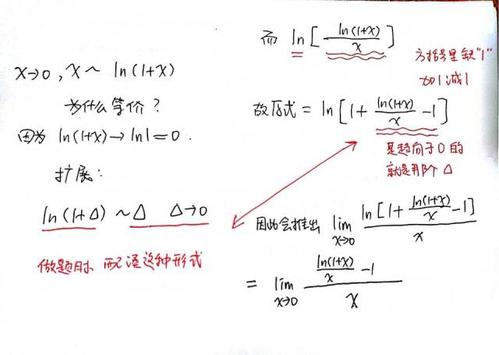 x→0, x ~ ln(1+x)
为什么等价?
因为 ln(1+x)→ln1=0.
扩展:
ln(1+Δ) ~ Δ Δ→0
做题时, 配凑这种形式
而 ln[ ln(1+x)/x ]
方括号里缺"1"
加1减1
故原式 = ln[1+ ln(1+x)/x -1]
是趋向于0的
就是那个Δ
因此会推出 lim x→0 ln[1+ ln(1+x)/x -1] / x
= lim x→0 (ln(1+x)/x -1) / x